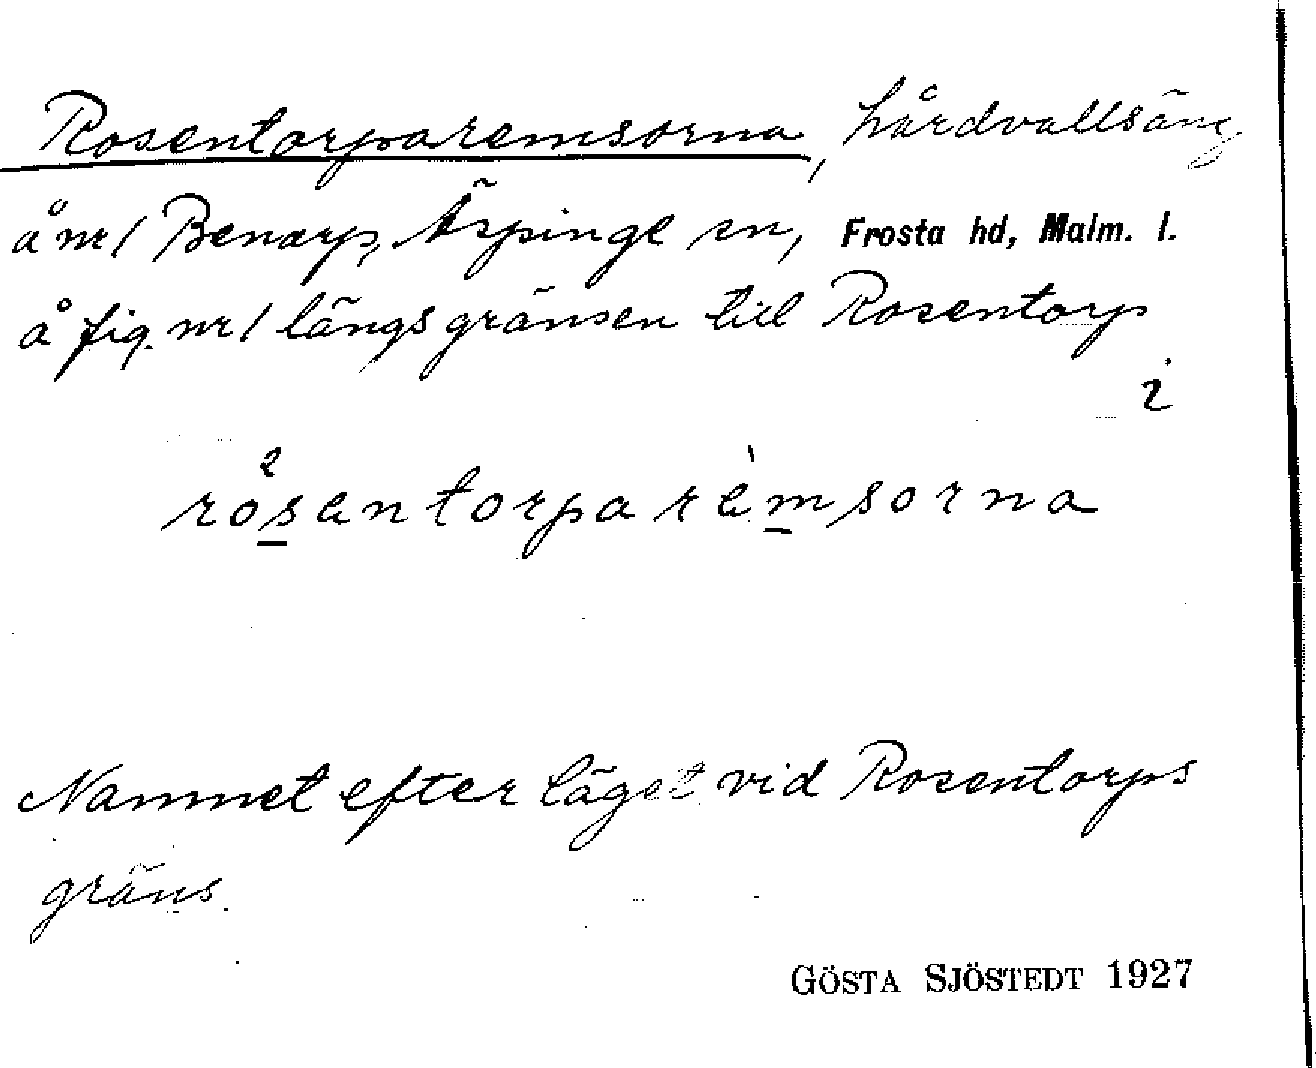 Rosentorparemsorna, hårdvallsäng
å nr 1 Benarp, Äspinge sn, Frosta hd, Malm. l.
å fig. nr 1 längs gränsen till Rosentorp
i
rosentorparemsorna
Namnet efter läget vid Rosentorps
gräns.
GÖSTA SJÖSTEDT 1927